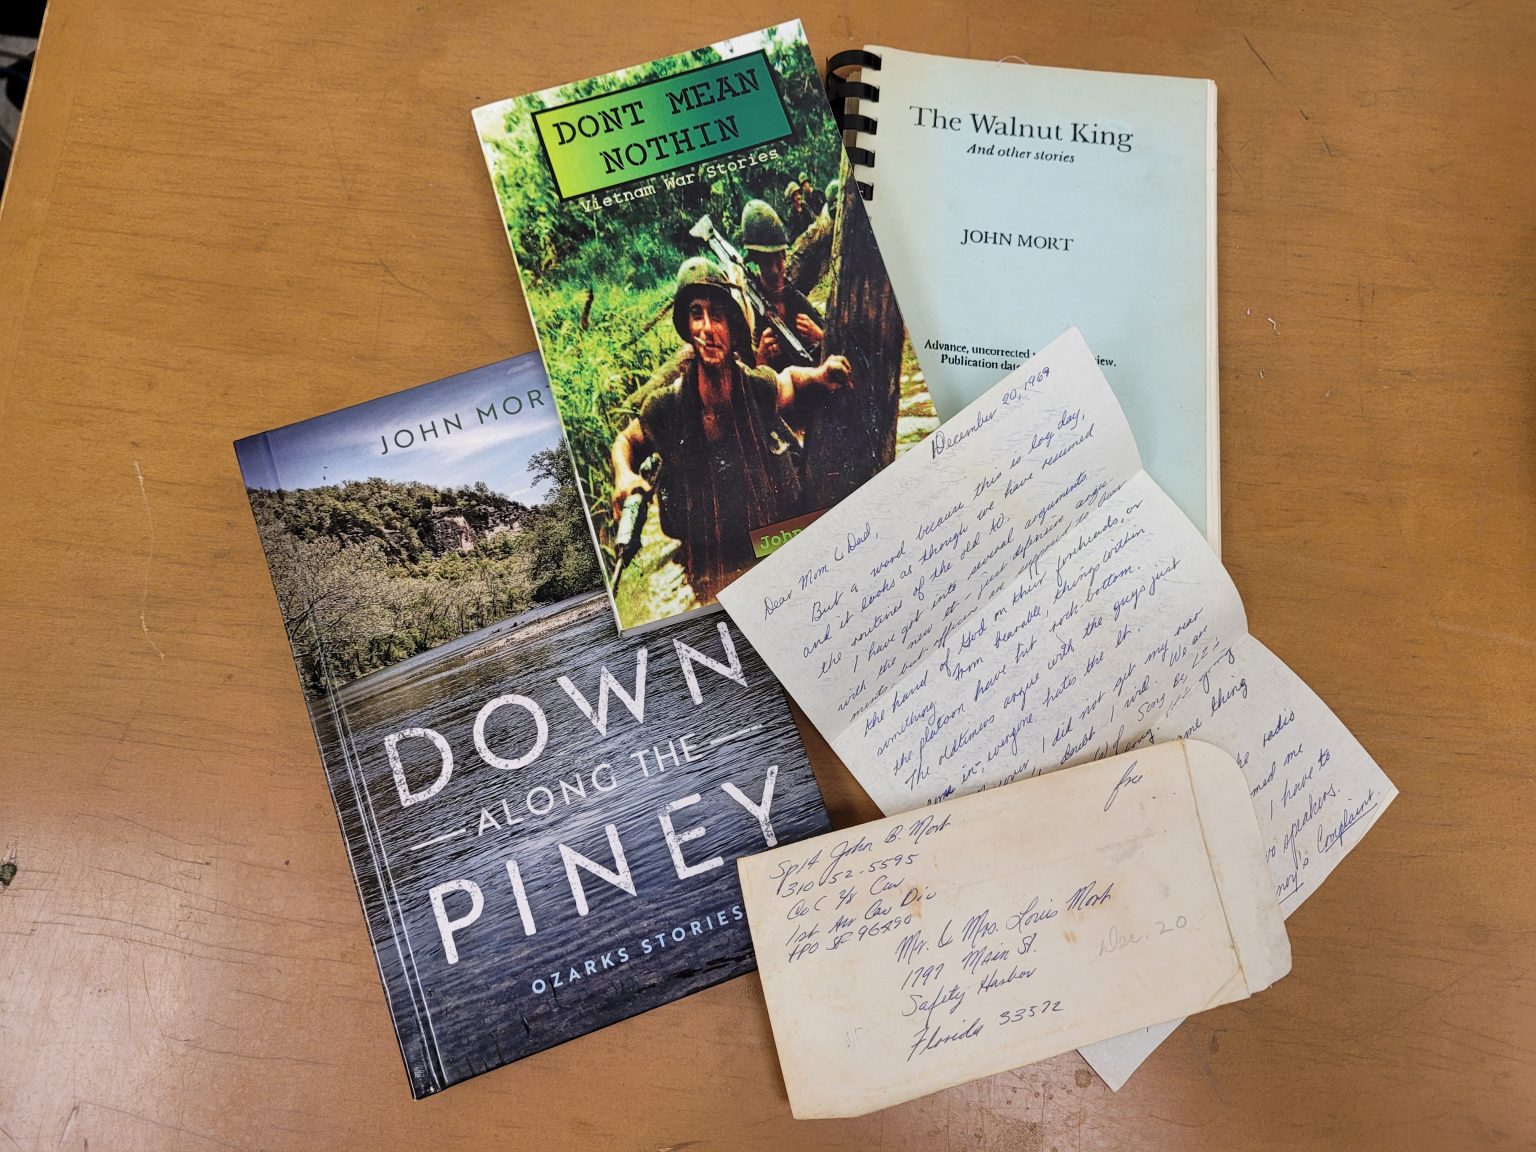 DONT MEAN
NOTHIN
Vietnam War Stories
John
The Walnut King
And other stories
JOHN MORT
Advance, uncorrected
Publication
JOHN MORT
DOWN
ALONG THE
PINEY
OZARKS STORIES
December 20, 1969
Dear Mom & Dad,
But a word because this is log day,
and it looks as though we have resumed
the routines of the old AO.
I have got into several arguments
with the new lt - I just supposed to bear
defensive argu-
ments, but officers are
the hand of God on their foreheads, or
something
From bearable, things within
the platoon have hit rock-bottom.
The oldtimers argue with the guys just
in, everyone hates the lt.
I did not get my rear
I doubt I will. We
same thing
radio
me
I have to
speakers.
Complaint.
Free
Sp/4 John B. Mort
310-52-5595
Co C 2/8 Cav
1st Air Cav Div
APO SF 96490
Mr. & Mrs. Louis Mort
1797 Main St.
Safety Harbor
Florida 33572
Dec. 20